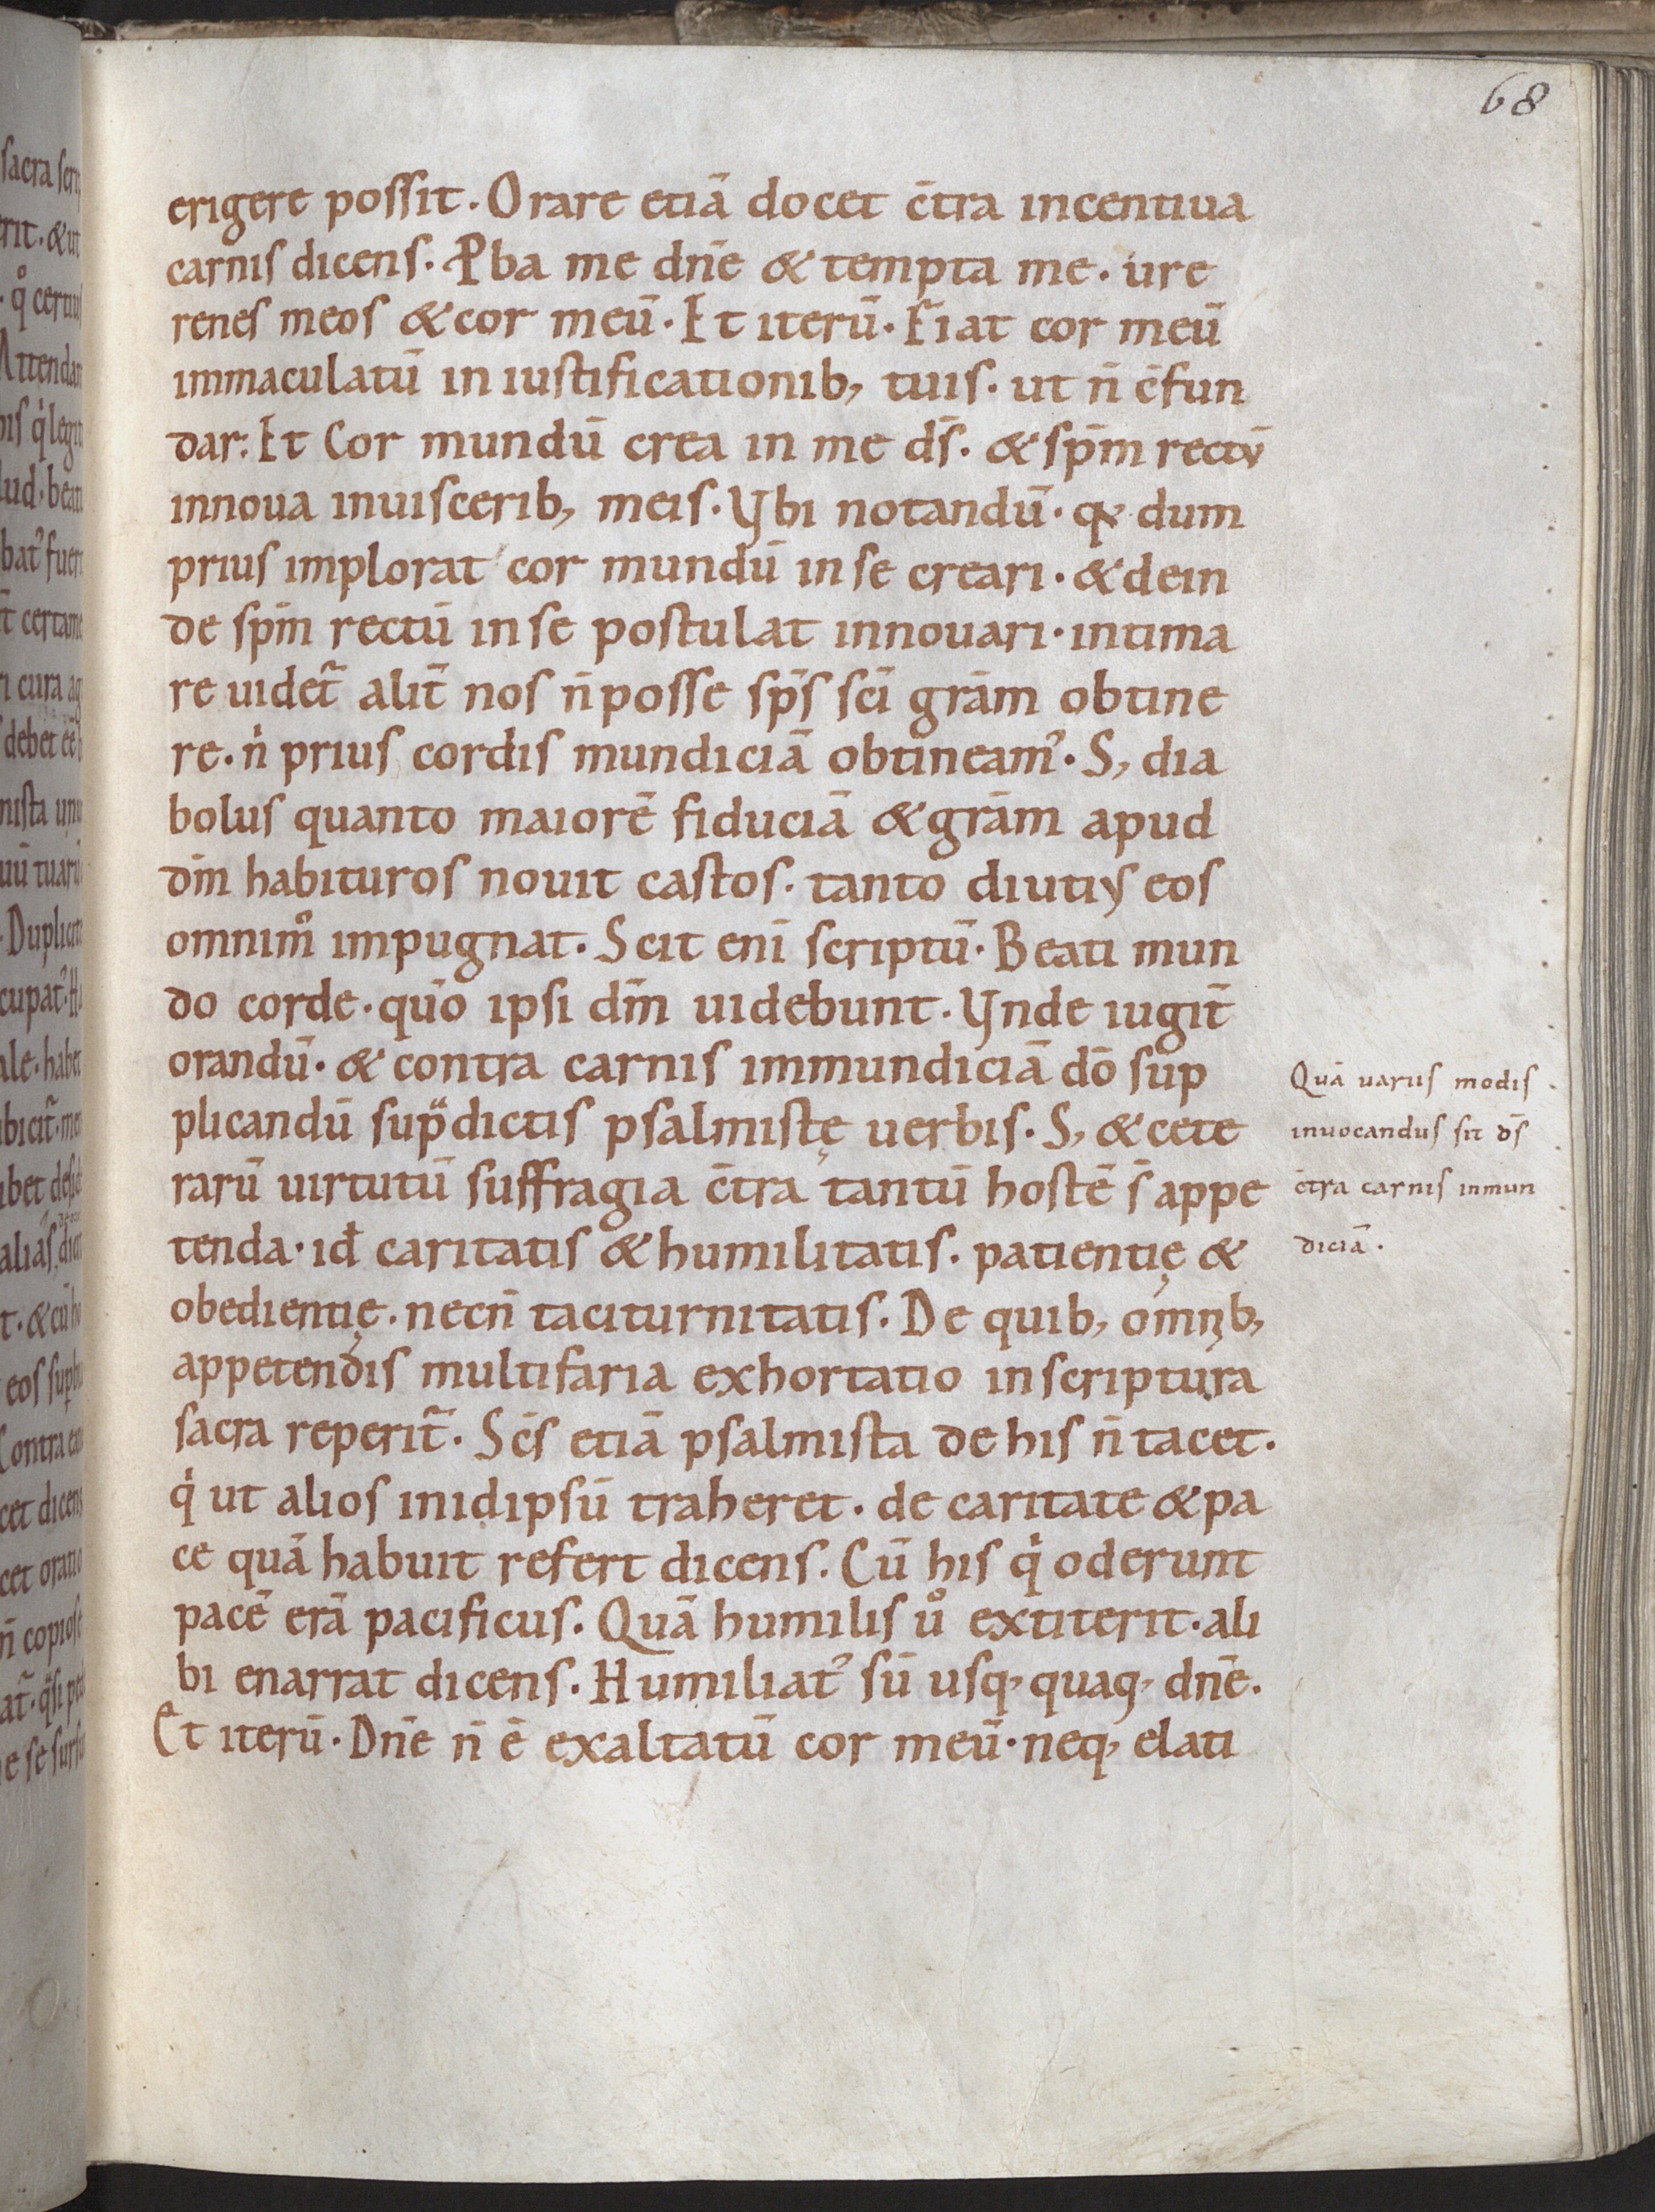 68
erigere possit. Orare etiā docet c̄tra incentiua
carnis dicens. Ꝓba me dn̄e & tempta me. ure
renes meos & cor meū. Et iterū. Fiat cor meū
immaculatū in iustificationib; tuis. ut n̄ c̄fun
dar. Et Cor mundū crea in me ds̄. & sp̄m rectū
innoua inuiscerib; meis. Vbi notandū. qꝛ dum
prius implorat cor mundū in se creari. & dein
de sp̄m rectū in se postulat innouari. intima
re uidet᷑ alit̄ nos n̄ posse sp̄s sc̄i grām obtine
re. nͥ prius cordis mundiciā obtineam᾽. S; dia
bolus quanto maiorē fiduciā & grām apud
dm̄ habituros nouit castos. tanto diutiꝰ eos
omnimͦ impugnat. Scit enī scriptū. Beati mun
do corde. qūo ipsi dm̄ uidebunt. Vnde iugit̄
orandū. & contra carnis immundiciā dō sup
plicandū sup̄dictis psalmistę uerbis. S; & cete
rarū uirtutū suffragia c̄tra tantū hostē s̄ appe
tenda. id̄ caritatis & humilitatis. patientię &
obedientię. necn̄ taciturnitatis. De quib; omīb;
appetendis multifaria exhortatio in scriptura
sacra reperit᷑. Sc̄s etiā psalmista de his n̄ tacet.
qͥ ut alios inidipsū traheret. de caritate & pa
ce quā habuit refert dicens. Cū his qͥ oderunt
pacē erā pacificus. Quā humilis uͦ extiterit. ali
bi enarrat dicens. Humiliat᾽ sū usq; quaq; dn̄e.
Et iterū. Dn̄e n̄ ē exaltatū cor meū. neq; elati
Quā uariis modis
inuocandus sit ds̄
c̄tra carnis inmun
diciā.